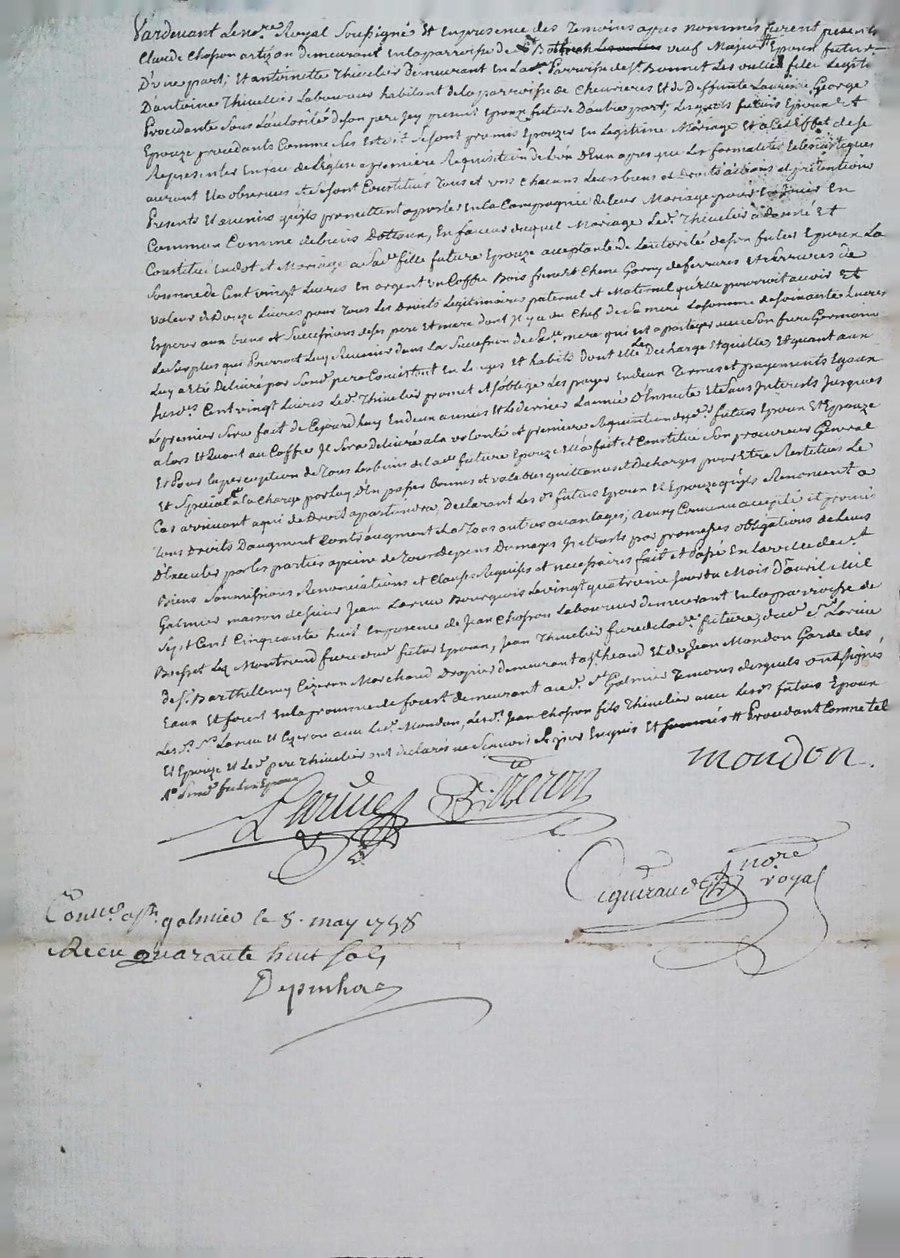 Pardevant Le no.re Royal Soussigné Et En presence des Temoins apres nommés furent presents
Claude Chosson artisan demeurant En la parroisse de St veuf Majeur Epoux futur
D'une part, Et antoinette Thivelier Demeurant En lad. Parroisse de St. Bonnet Les oulles fille Legit.
D'antoine Thivelier Laboureur habitant de la parroisse de Chevrieres Et de Deffunte Laurence George
procedante Sous L'autorité de son pere icy present Epouze future D'autre part; Lesquels futurs Epoux Et
Epouze procedants Comme dit Est, se sont promis Epouzer En Legitime Mariage Et a Cet Effet de se
Representer En face de L'église a premiere Requisition de L'un D'eux apres que Les formalités Eclesiastiques
auront Eté observées Se sont Constitués Tous et uns chacuns Leurs biens et Droits actions et pretentions
Presents Et avenirs qu'ils promettent aporter En la Compagnie de leur Mariage pour En jouir En
Commun Comme de biens Dotaux, En faveur duquel Mariage Led. Thivelier a donné Et
Constitué En dot Et Mariage a Sad. fille future Epouze acceptante de L'autorité de son futur Epoux La
Somme de Cent vingt Livres En argent un Coffre Bois sapin Et Chene Garny de ferrures Et serrures de
valeur de Douze Livres pour Tous Les Droits Legitimaires paternel et Maternel qu'elle pourroit avoir Et
Esperer aux biens et Successions de ses pere Et mere dont il y a du Chef de Sa mere La somme de soixante Livres
Le Surplus qui Pourroit Luy Revenir dans la Succession de Sad. mere qui Est a partager avec Son frere Germain
Luy a Eté Delivré par Sond. pere Consistant En Linges Et habits dont Elle Le Decharge Et quitte, Et quant aux
susd. Cent vingt Livres Led. Thivelier promet Et s'oblige Les payer En deux Termes et payements Egaux
Le premier Sera fait de Cejourd'huy En deux années Et Le dernier L'année D'Ensuite Et Sans Interests Jusques
alors Et quant au Coffre il Sera delivré a la volonté Et premiere Requisition desd. futurs Epoux Et Epouze
Et Pour la perception de Tous Les biens de Lad. future Epouze Elle a fait et Constitué Son procureur General
Et Special a la Charge par luy D'en passer bonnes et valables quittances et Decharges pour Etre Restitués Le
Cas arrivant a qui de Droit apartiendra, Declarant Les d. futurs Epoux Et Epouze qu'ils Renoncent a
Tous Droits D'augment Contr'augment Et a Tous autres avantages; ainsy Convenu accepté et promis
D'Executer par Les parties a peine de Tous depens Dommages Interests par promesses obligations de Leurs
Biens Soumissions Renonciations et Clauses Requises et necessaires fait et Passé En la ville de St
Galmier maison de Sieur Jean Larue Bourgeois Le vingt quatrieme jour du Mois D'avril Mil
Sept Cent Cinquante huit En presence de Jean Chosson Laboureur demeurant En la parroisse de
Boisset Les Montrond frere dud. futur Epoux, Jean Thivelier frere de Lad. future; dud. Sr. Larue
de Sr. Barthelemy Cizeron Marchand Drapier demeurant a St heand Et de Jean Mondon Garde des
Eaux Et forest En la province de forest demeurant aud. St. Galmier Temoins desquels ont Signés
Les d. Srs. Larue Et Cizeron avec Led. Mondon, Lesd. Jean Chosson fils Thivelier avec Les d. futurs Epoux
Et Epouze Et Led. pere Thivelier ont declarés ne Scavoir Signer Enquis Et Procedant Comme tel
Sond. futur Epoux
mondon
Larue Cizeron
Ciguiraud no.re royal
Con.lé a St. galmier le 5. may 1758
Recu quarante huit sols
Depinhac